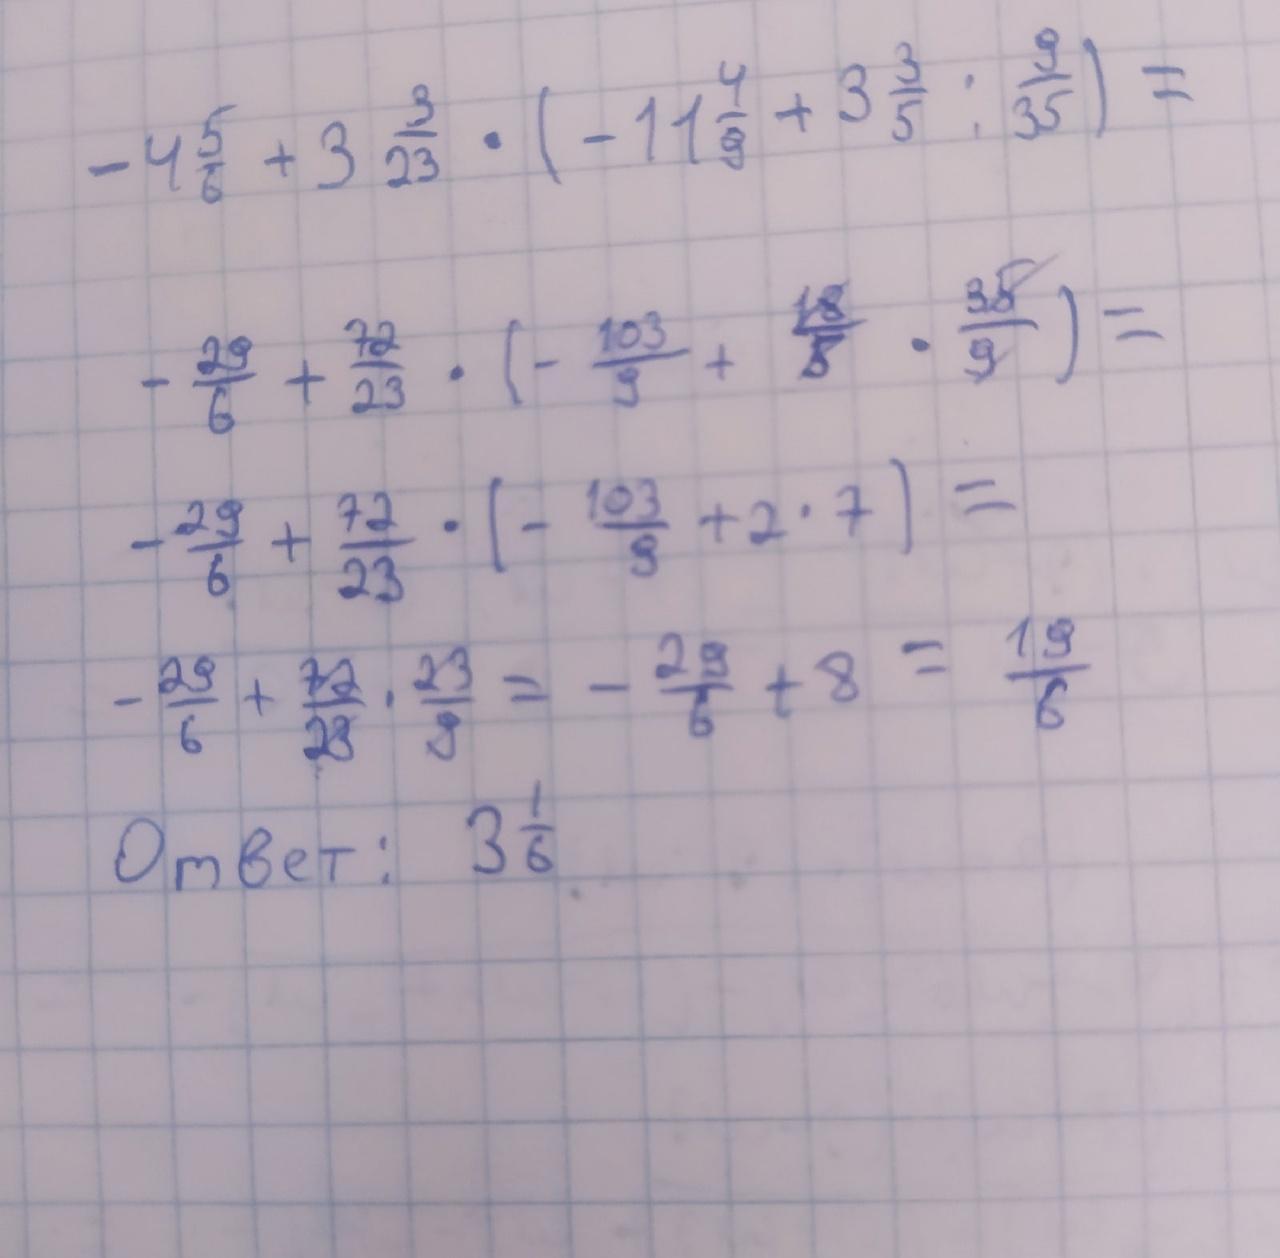 -4 5/6 + 3 3/23 · (-11 4/9 + 3 3/5 : 9/35) =
-29/6 + 72/23 · (-103/9 + 18/5 · 35/9) =
-29/6 + 72/23 · (-103/9 + 2 · 7) =
-29/6 + 72/23 · 23/9 = -29/6 + 8 = 19/6
Ответ: 3 1/6